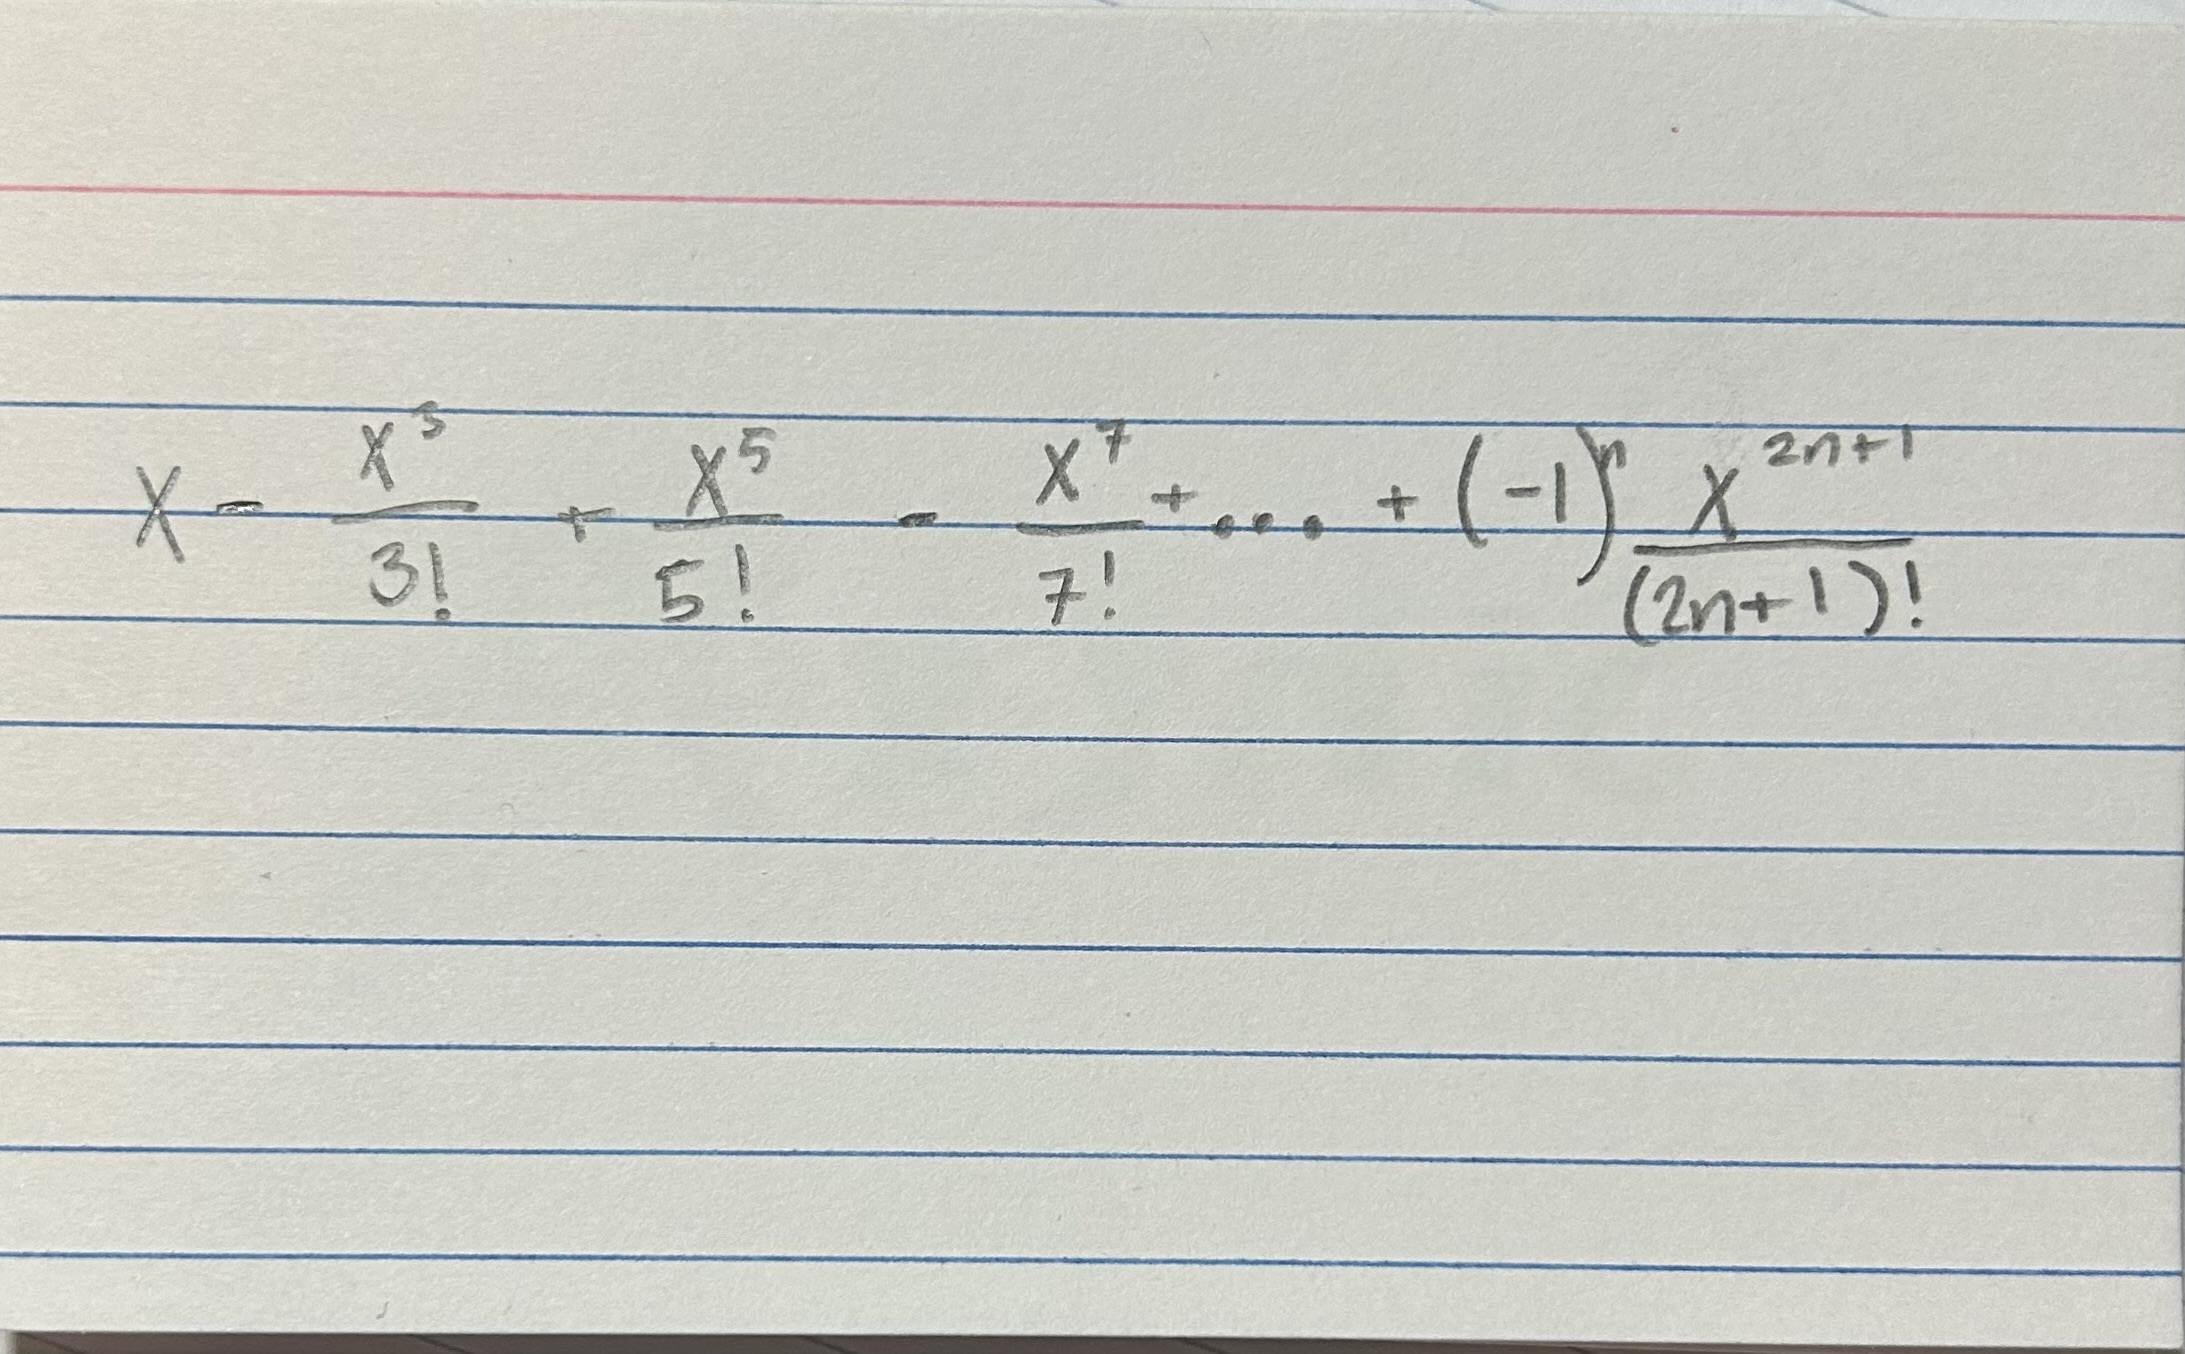 x - x³/3! + x⁵/5! - x⁷/7! + ... + (-1)ⁿ x²ⁿ⁺¹/(2n+1)!